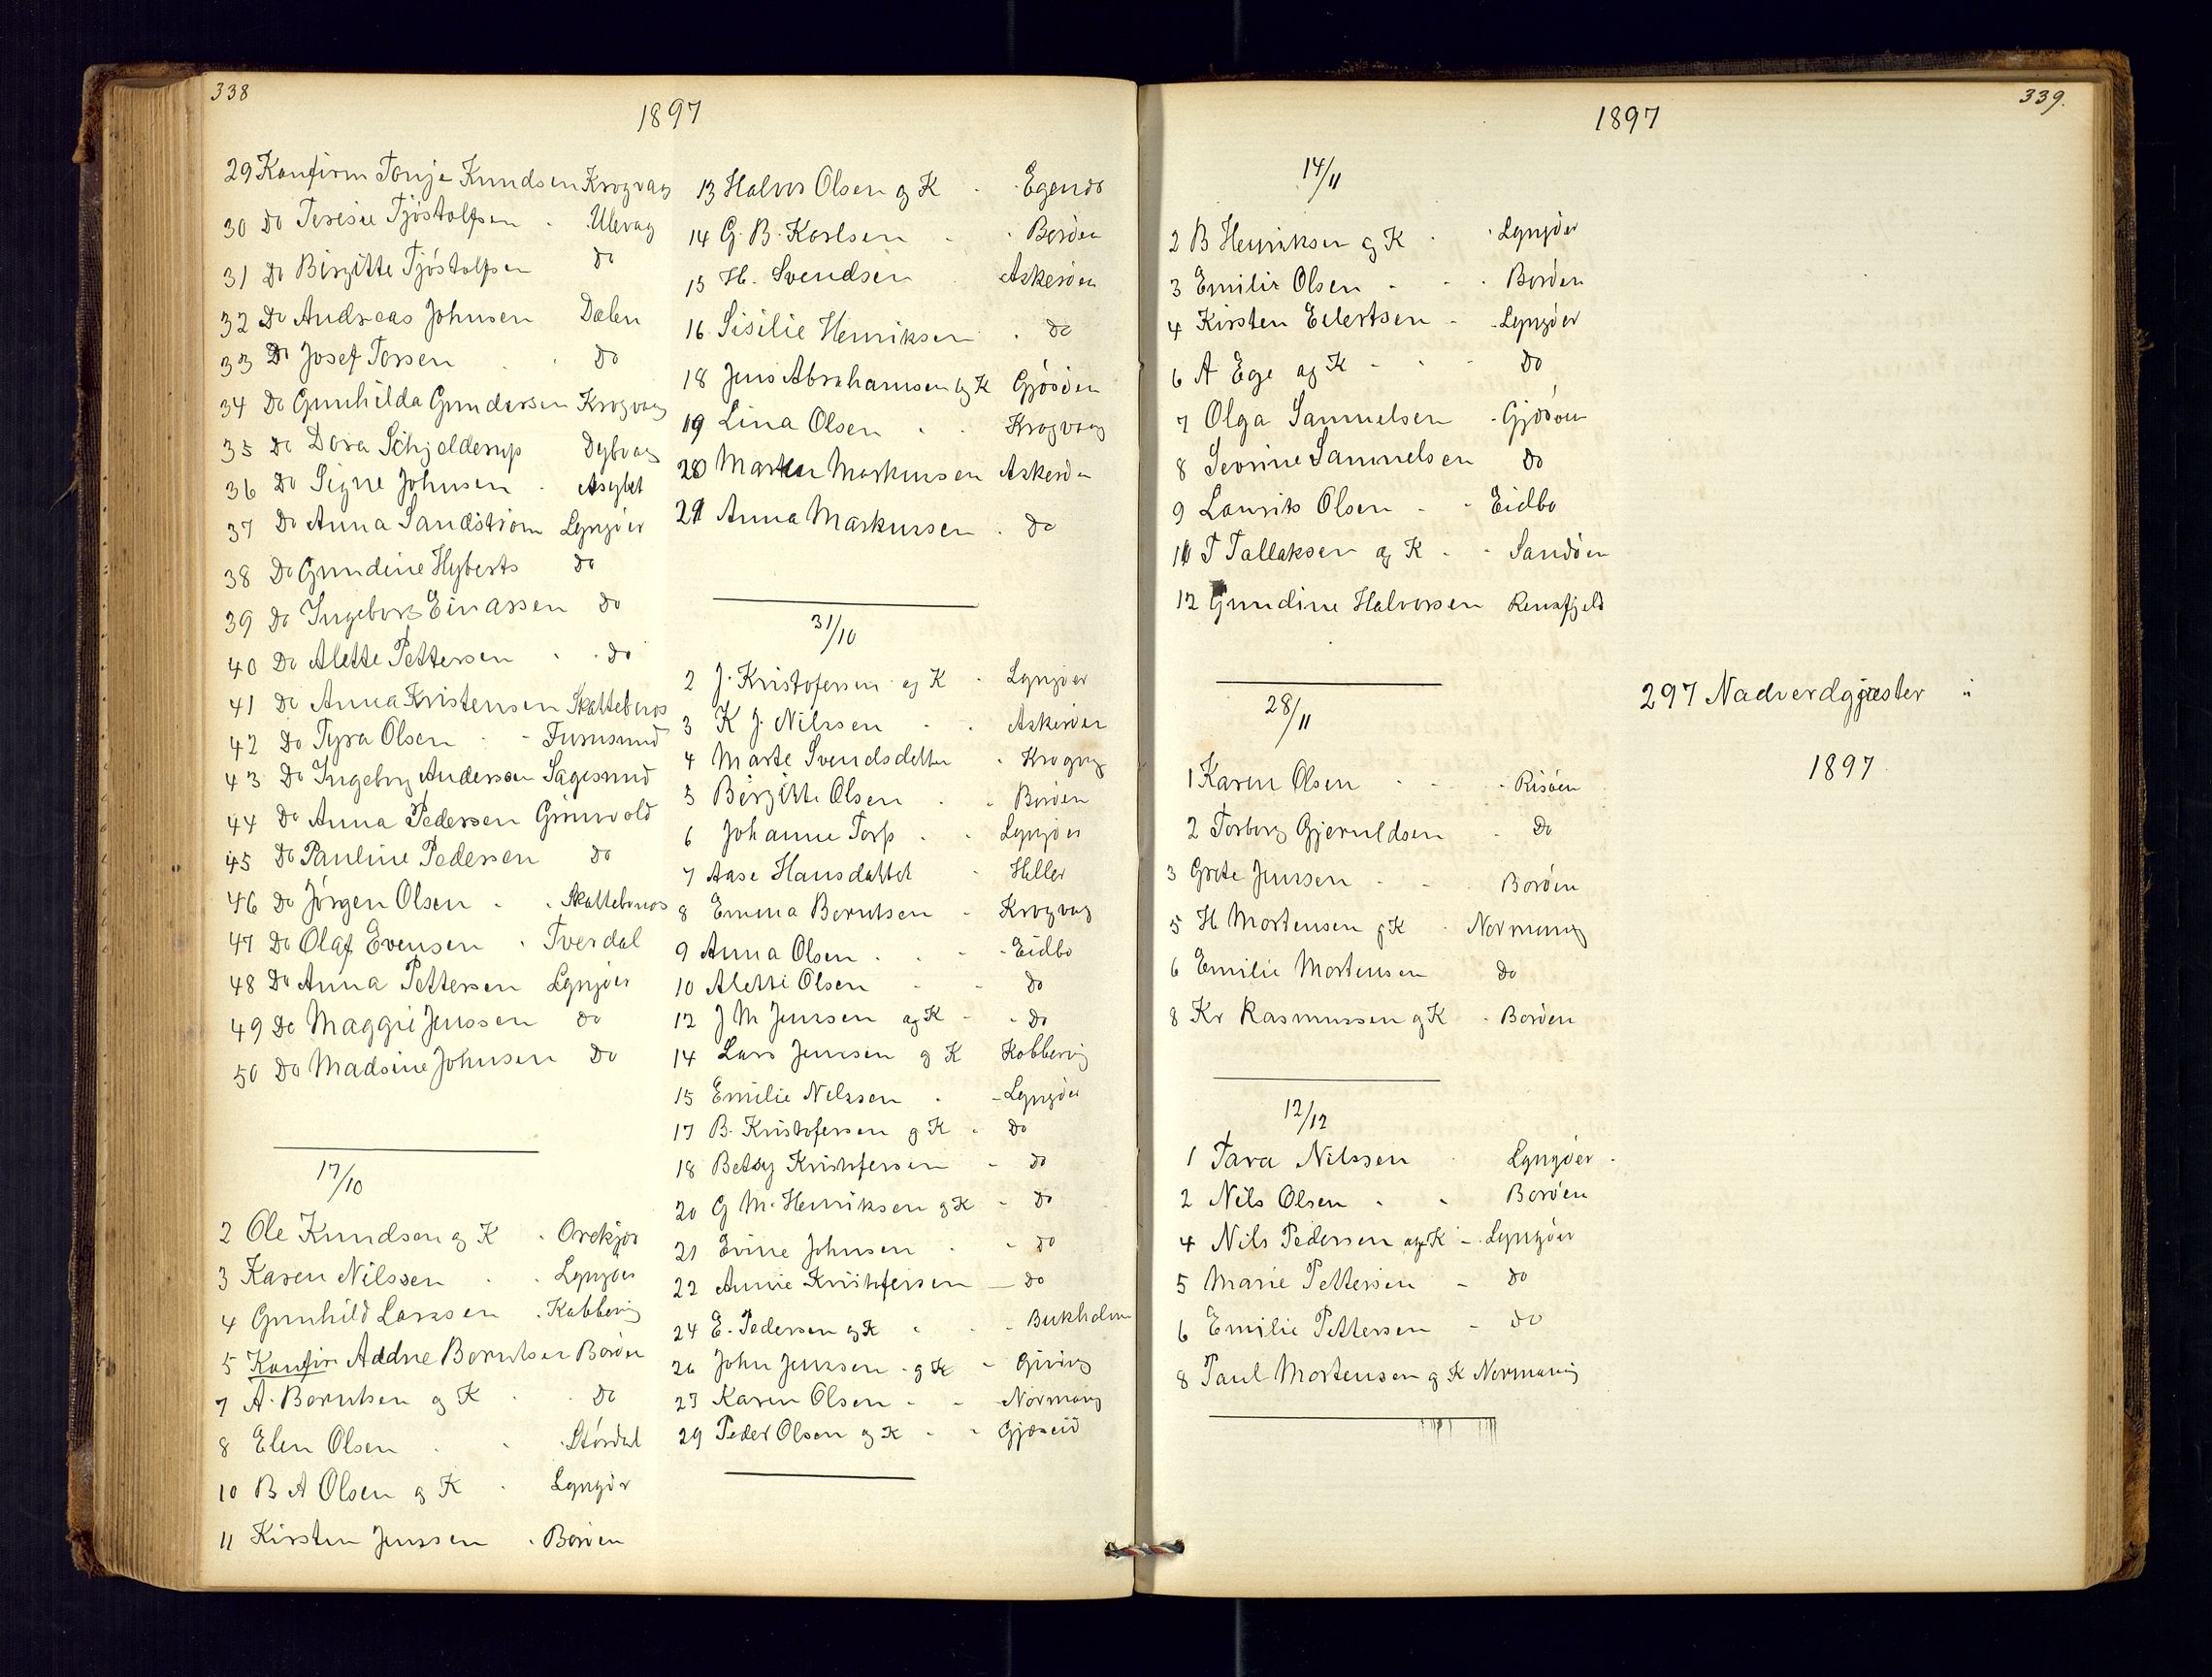 338
1897
29 Konfirm Tonje Knudsen Krogvag
30 Do Teresie Tjöstolfsen Ulevag
31 Do Birgitte Tjöstolfsen do
32 Do Andreas Johnsen Dalen
33 Do Josef Torsen Do
34 Do Gunhilda Gundersen Krogvag
35 Do Dora Schjelderup Dybvag
36 Do Signe Johnsen Asylet
37 Do Anna Sandström Lyngöer
38 Do Gundine Hyberts do
39 Do Ingeborg Einarssen do
40 Do Alette Pettersen do
41 Do Anna Kristensen Skattebenos
42 Do Tyra Olsen Furusund
43 Do Ingeborg Anderssen Sagesund
44 Do Anna Pederssen Grönvold
45 Do Pauline Pedersen do
46 Do Jörgen Olsen Skattebenos
47 Do Olaf Evensen Tverdal
48 Do Anna Pettersen Lyngöer
49 Do Maggie Jenssen do
50 Do Madsine Johnsen Do
17/10
2 Ole Knudsen og K Orekjær
3 Karen Nilssen Lyngöer
4 Gunhild Larssen Kabbevig
5 Konfir Addne Berntsen Boröen
7 A. Berntsen og K Do
8 Elen Olsen Stördal
10 B A Olsen og K Lyngör
11 Kirsten Jenssen Boröen
13 Halvor Olsen og K Egendo
14 G. B. Karlsen Boröen
15 H. Svendsen Askeröen
16 Sisilie Henriksen do
18 Jens Abrahamsen og K Gjösöen
19 Lina Olsen Krogvaag
20 Marken Markussen Askeröen
21 Anna Markussen do
31/10
2 J. Kristofersen og K Lyngöer
3 K J. Nilssen Askeröen
4 Marte Svendsdetter Krogvag
5 Birgitte Olsen Boröen
6 Johanne Torp Lyngöer
7 Aase Hansdattet Heller
8 Emma Berntsen Krogvag
9 Anna Olsen Eidbo
10 Alette Olsen do
12 J M Jenssen og K Do
14 Lars Jenssen og K Kobbevig
15 Emilie Nilssen Lyngöer
17 B. Kristofersen og K Do
18 Betsy Kristofersen do
20 G M. Henriksen og K do
21 Evine Johnsen do
22 Annie Kristofersen do
24 E. Pedersen og K Bukholm
26 John Jenssen og K Giving
27 Karen Olsen Normang
29 Peder Olsen og K Gjæseid
339.
1897
14/11
2 B Henriksen og K Lyngöer
3 Emilie Olsen Boröen
4 Kirsten Eilertsen Lyngöer
6 A Ege og K Do
7 Olga Samuelsen Gjösöen
8 Severine Samuelsen Do
9 Laurits Olsen Eidbo
11 T Tallaksen og K Sandöen
12 Gundine Halvorssen Rensfjeld
28/11
1 Karen Olsen Risöen
2 Torborg Gjeruldsen Do
3 Grete Jenssen Boröen
5 H Mortensen og K Normanvig
6 Emilie Mortensen do
8 Kr Rasmussen og K Boröen
12/12
1 Tara Nilssen Lyngöer
2 Nils Olsen Boröen
4 Nils Pedersen og K Lyngöer
5 Marie Pettersen do
6 Emilie Pettersen do
8 Paul Mortensen og K Normanvig
297 Nadverdgjæster i
1897